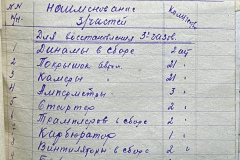 №№ п/п. наименование з/частей Количес.
Для восстановления 3х а/зов.
1 Динамы в сборе 2 шт
2 Покрышок авто. 21 "
3 Камеры 21 "
4 Амперметры 3 "
5 Стартер 2 "
6 Трамплеров в сборе 2 "
Карбюратор 1 "
Вентиляторы в сборе 2 "